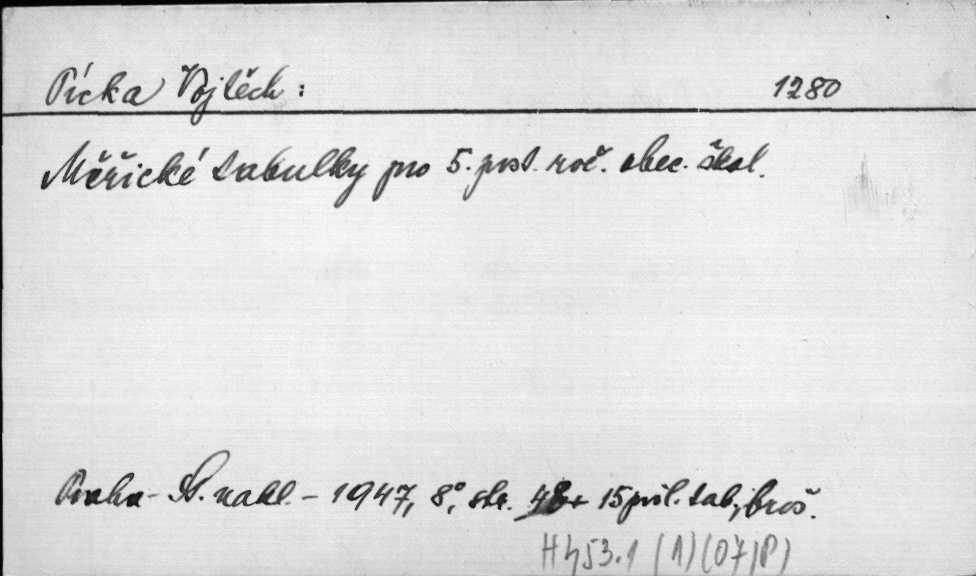 Pícka Vojtěch: 1280
Měřické tabulky pro 5. post. roč. obec. škol.
Praha - St. nakl. - 1947, 8°, str. 48 + 15 příl. tab., brož.
H 453.1 (1)(07)(P)